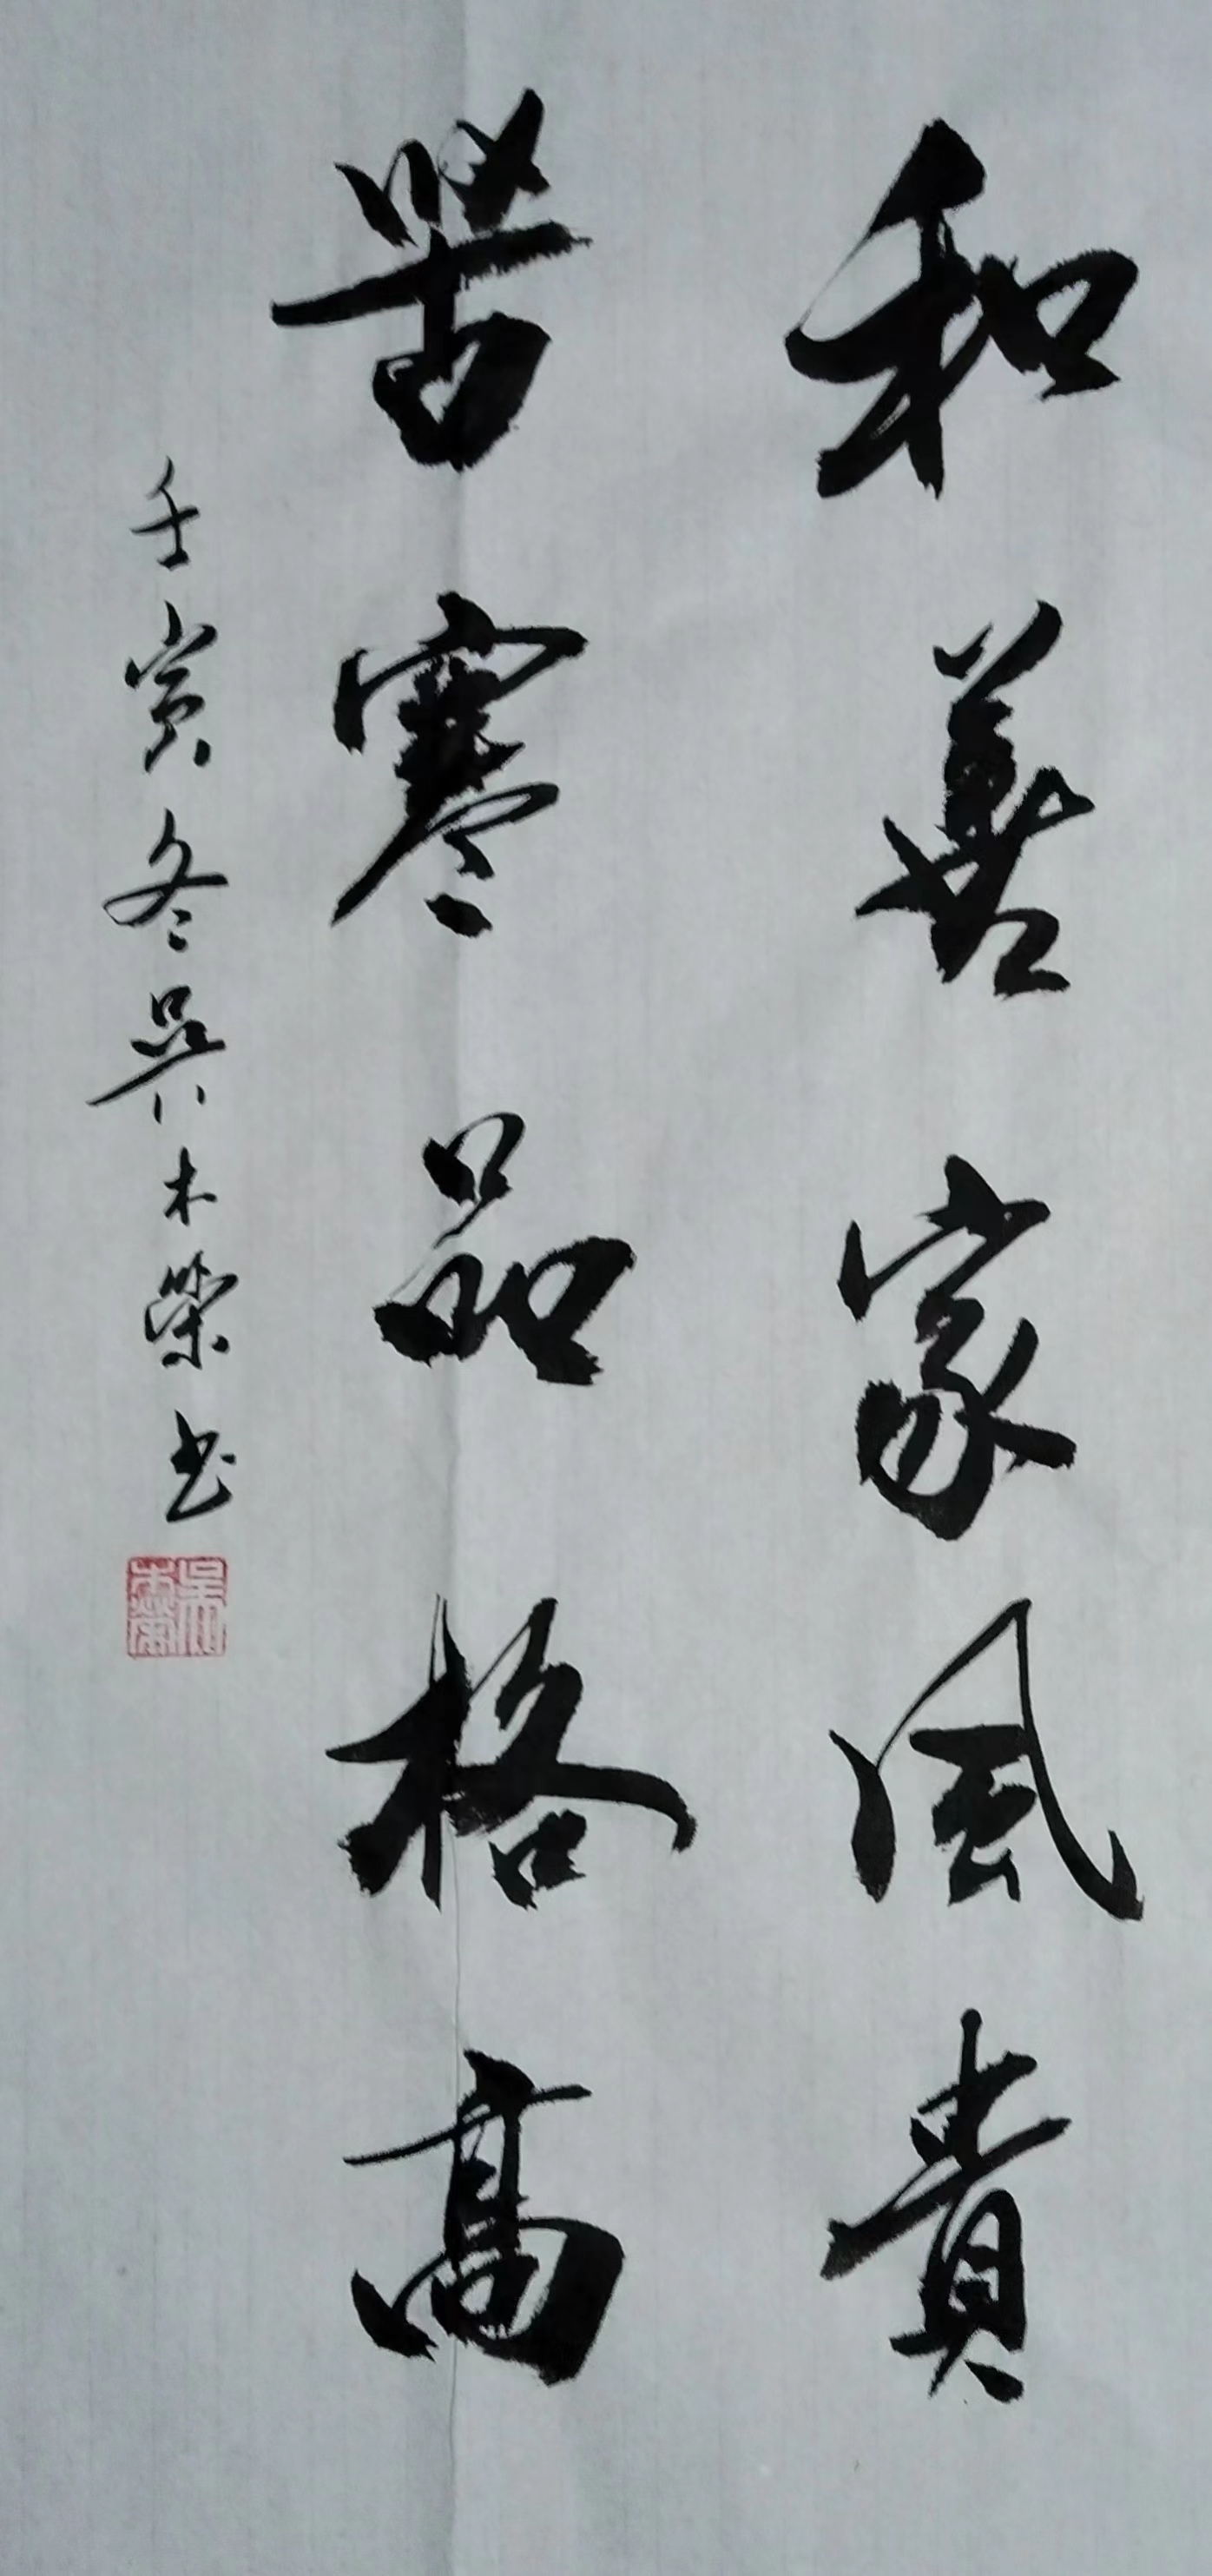 和善家風貴
苦寒品格高
壬寅冬吳木榮书
吳木榮